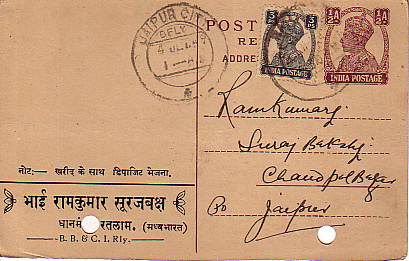 JAIPUR CITY
DELY
1-A
POST
RE
ADDRE
3 PS
INDIA POSTAGE
½A ½A
INDIA POSTAGE
Ramkumarji
Suraj Bakshji
Chandpol Bazar
Po Jaipur
नोट:— खरीद के साथ डिपाजिट भेजना.
भाई रामकुमार सूरजबक्ष
धानमं रतलाम. (मध्यभारत)
B. B. & C. I. Rly.